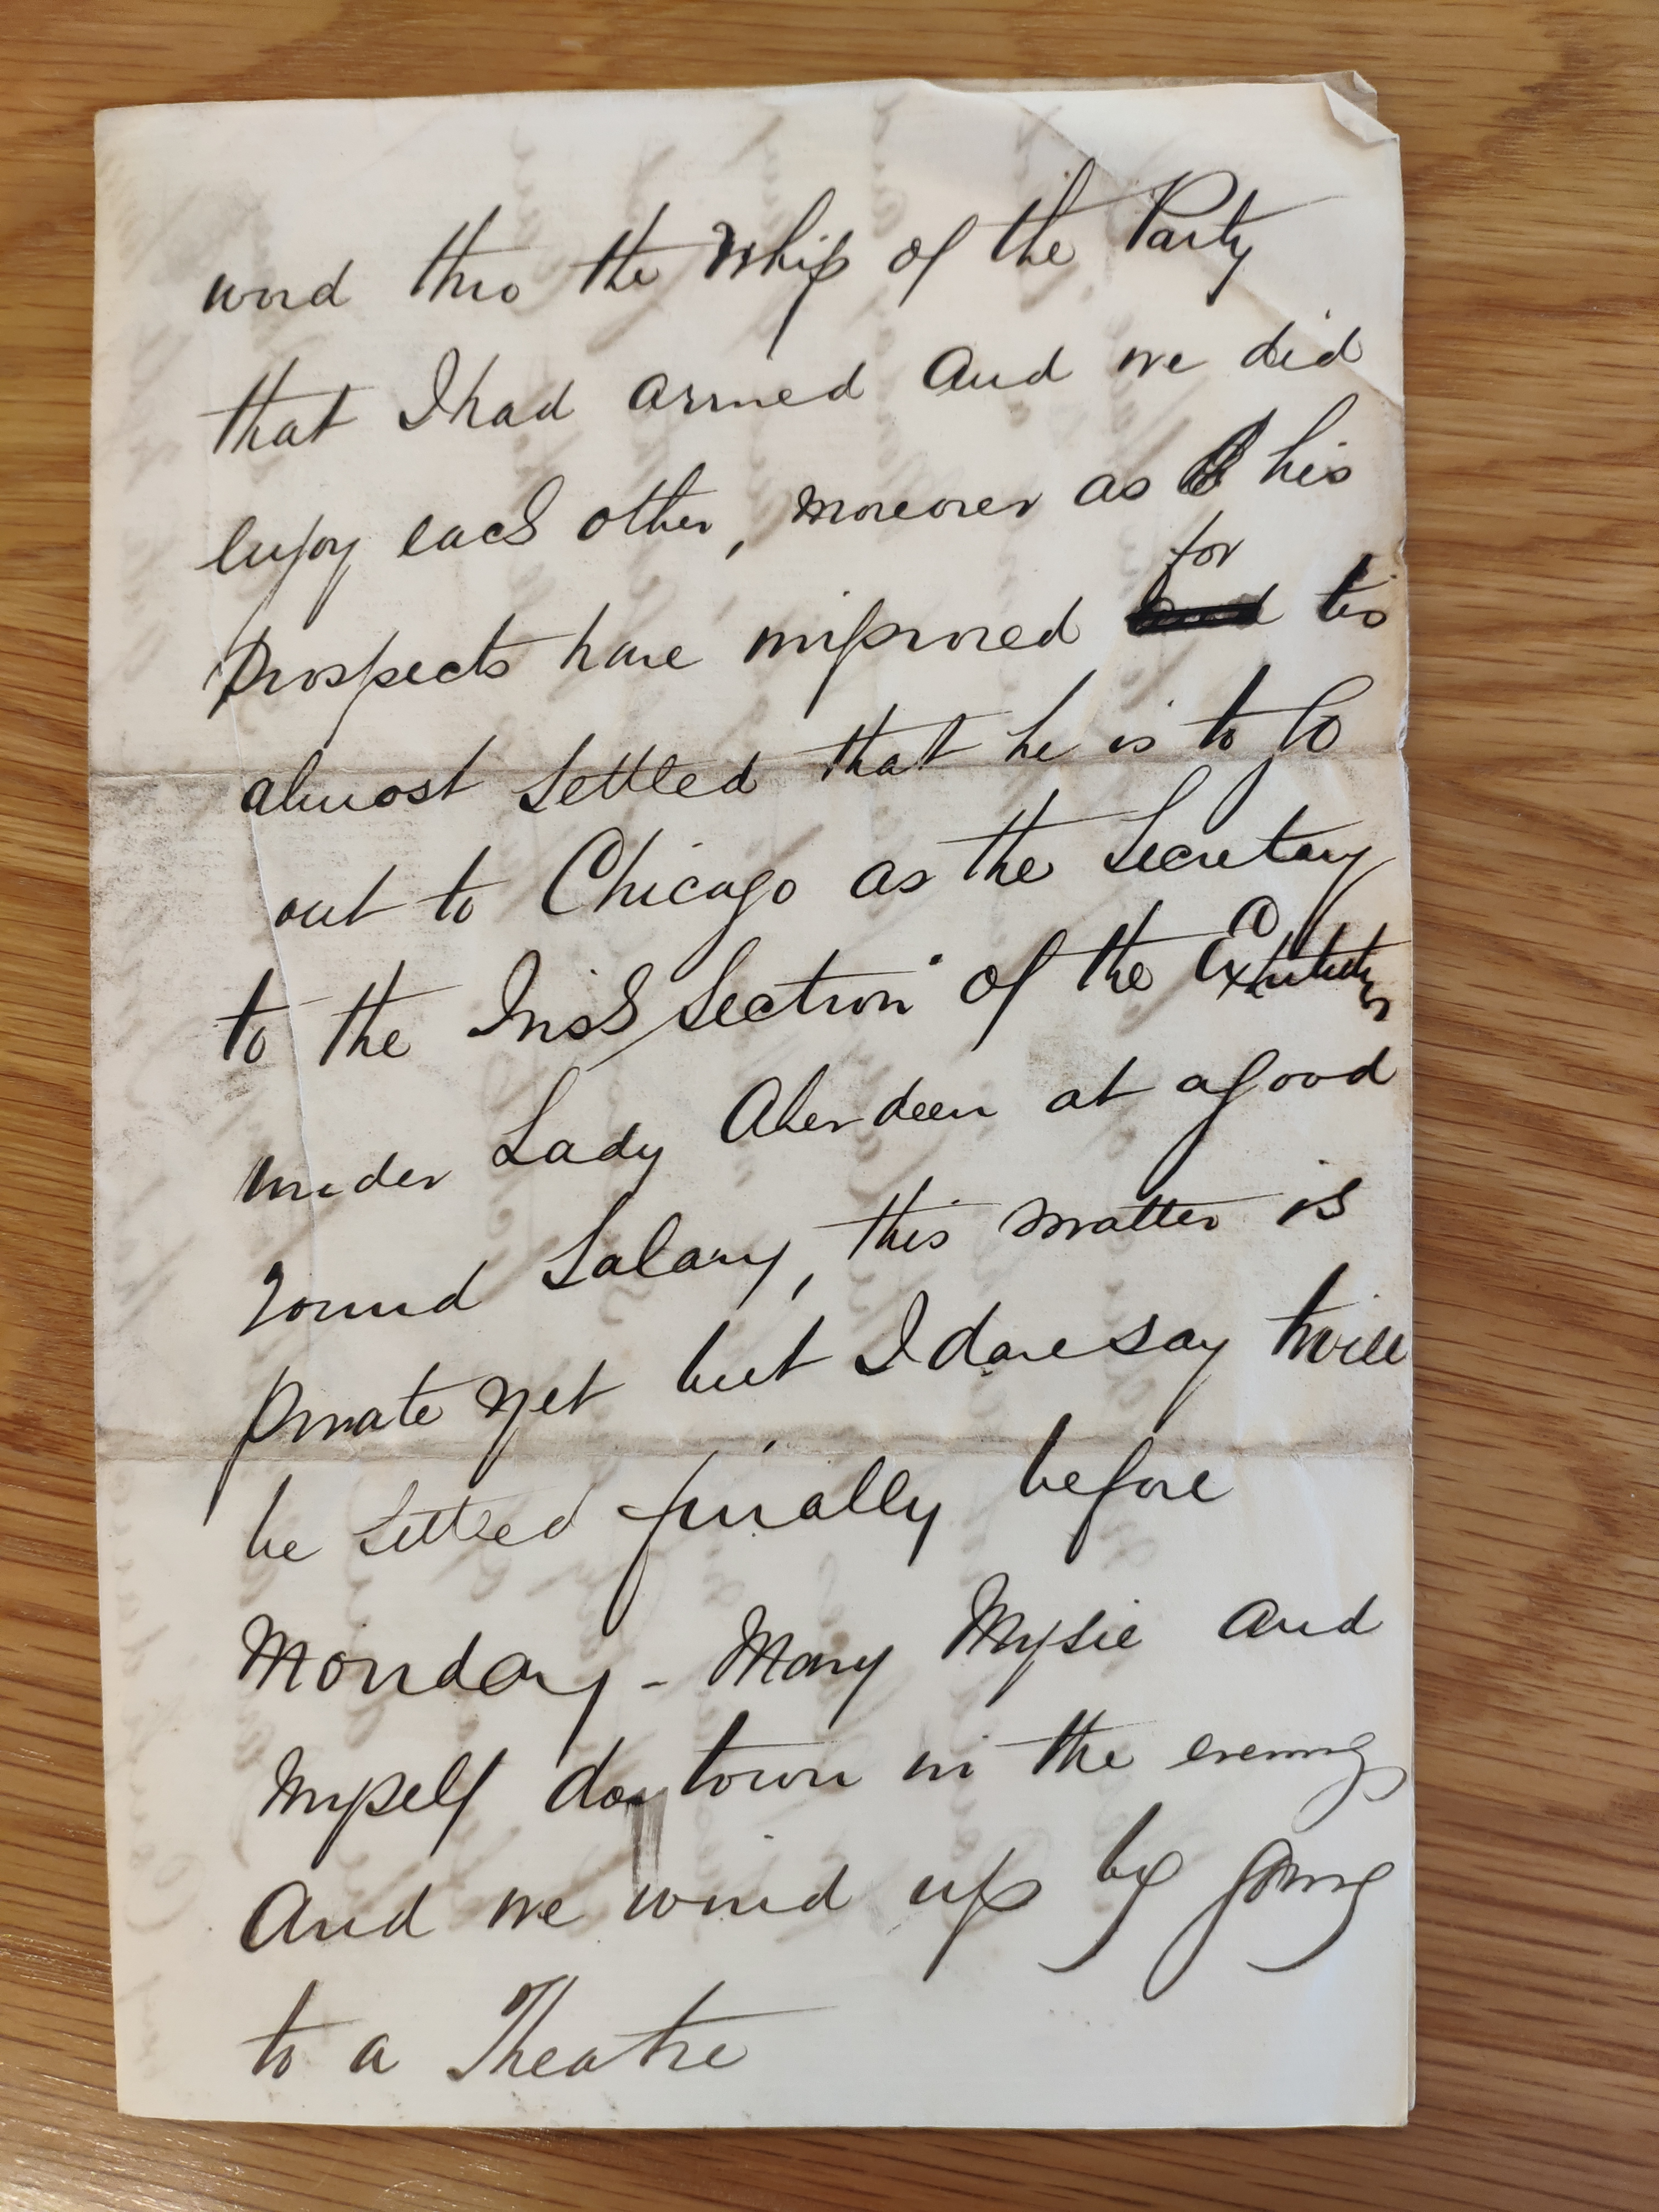 word thro the Whip of the Party
that I had arrived and we did
enjoy each other, moreover as his
for
prospects have improved tis
almost settled that he is to Go
out to Chicago as the Secretary
to the Irish Section of the Exhibition
under Lady Aberdeen at a good
round Salary, this matter is
private yet but I dare say twill
be settled finally before
Monday - Mary Mysie and
Myself do town in the evenings
And we wind up by going
to a Theatre